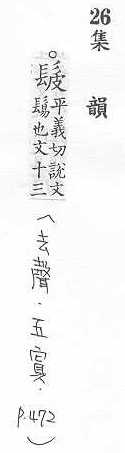 26 集韻
○髲平義切說文
鬄也文十三
（去聲．五寘．P.472）